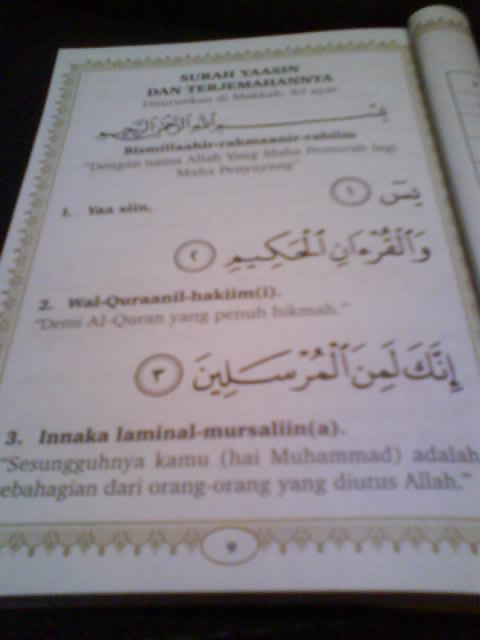 SURAH YAASIN
DAN TERJEMAHANNYA
Diturunkan di Makkah, 83 ayat
بِسْمِ اللهِ الرَّحْمٰنِ الرَّحِيْمِ
Bismillaahir-rahmaanir-rahiim
"Dengan nama Allah Yang Maha Pemurah lagi
Maha Penyayang"
يٰسٓ ١
1. Yaa siin.
وَالْقُرْءَانِ الْحَكِيمِ ٢
2. Wal-Quraanil-hakiim(i).
"Demi Al-Quran yang penuh hikmah."
إِنَّكَ لَمِنَ الْمُرْسَلِينَ ٣
3. Innaka laminal-mursaliin(a).
"Sesungguhnya kamu (hai Muhammad) adalah
sebahagian dari orang-orang yang diutus Allah."
9